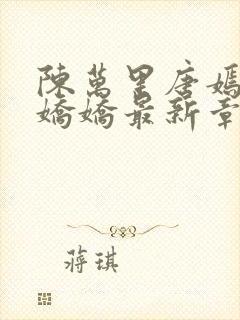 陳萬里唐嫣
嬌嬌最新章
蔣琪